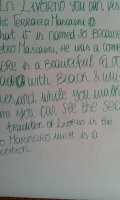 In Livorno you can vis
the Terrazza Mascagni
that it is named so because
tro Mascagni, He was a comp
ere is a Beautiful
ad with Black & whi
es and while you walk
m you can see the sea
tradition of Livorno is the
to Marinaro such is a